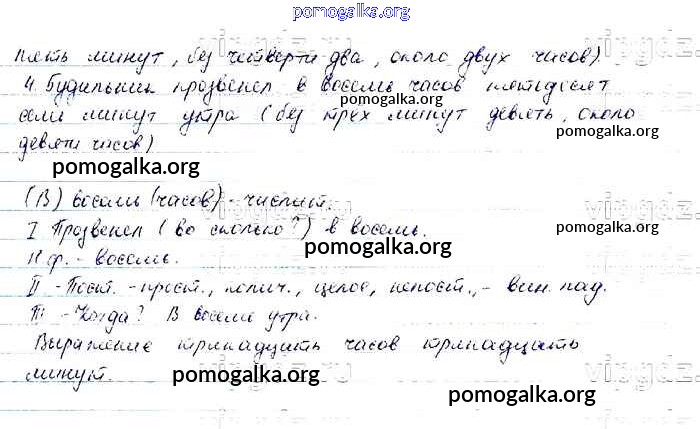 pomogalka.org
пять минут, без четверти два, около двух часов).
4. Будильник прозвенел в восемь часов пятьдесят
pomogalka.org
семь минут утра (без трех минут девять, около
pomogalka.org
девяти часов)
pomogalka.org
(В) восемь (часов) - числит.
pomogalka.org
I Прозвенел (во сколько?) в восемь.
pomogalka.org
pomogalka.org
Н.ф. - восемь.
II - Пост. - прост., колич., целое, непост., - вин. пад.
III - Когда? В восемь утра.
Выражение тринадцать часов тринадцать
минут.
pomogalka.org
pomogalka.org